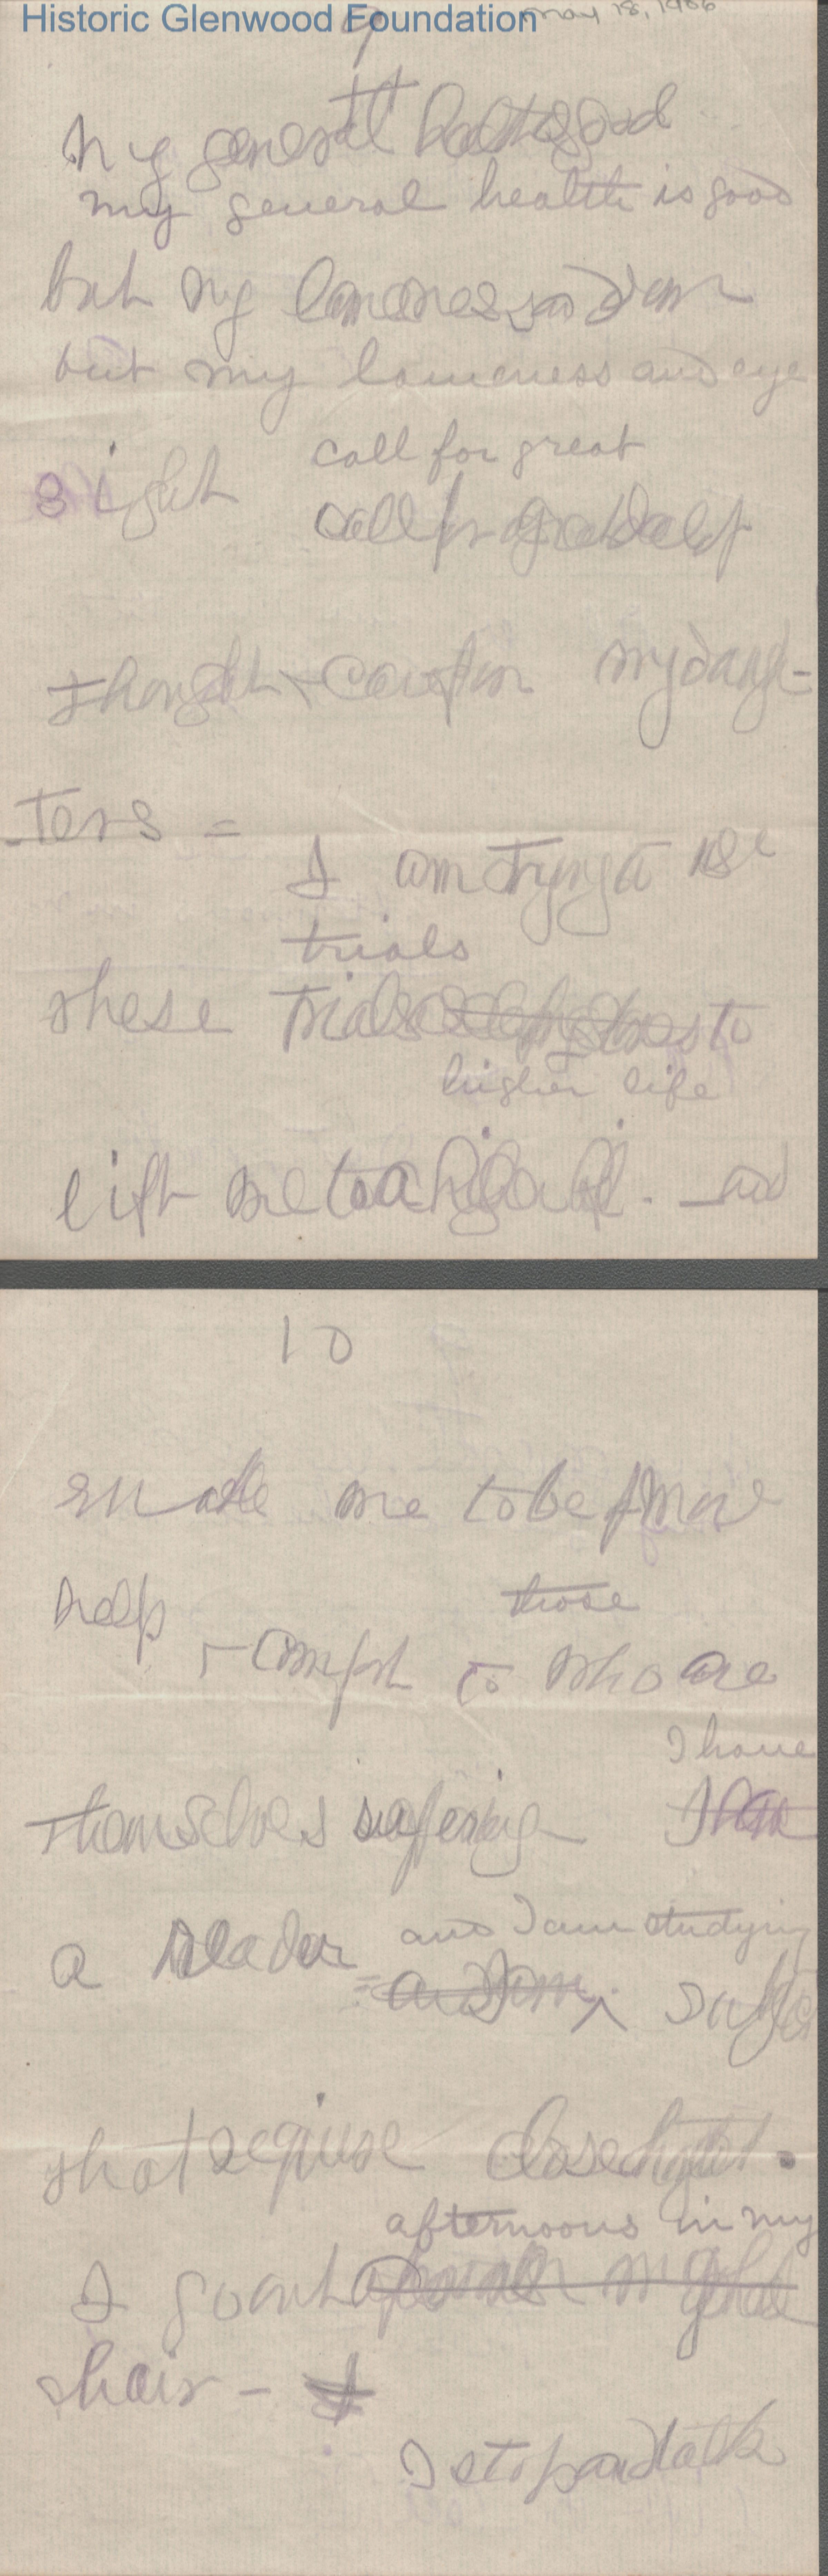 Historic Glenwood Foundation
May 18, 1906
9
My general health good
my general health is good
but my lameness and
but my lameness and eye
sight call for great
call for great
thought + caution my daugh-
-ters =
I am trying to use
trials
these trials to
higher life
lift me to a high life. and
10
enable me to be more
help + comfort to who are
those
I have
themselves suffering
a reader and I am studying
and I am
that require close
afternoons in my
I go out
chair - I
I stop and talk